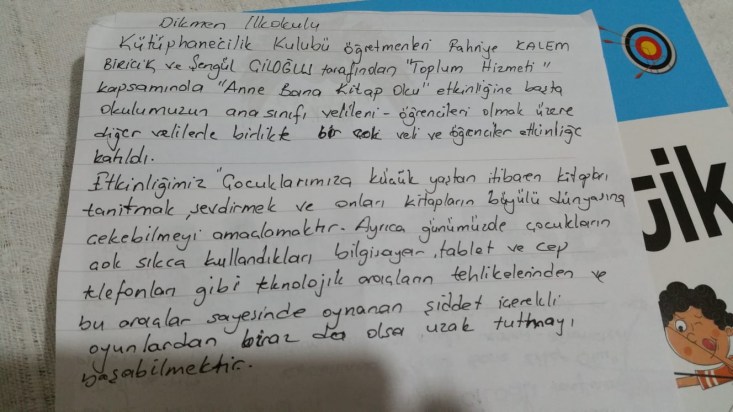 Dikmen İlkokulu
Kütüphanecilik Kulübü öğretmenleri Fahriye KALEM
BİRİCİK ve Şengül GİLOĞLU tarafından "Toplum Hizmeti"
kapsamında "Anne Bana Kitap Oku" etkinliğine başta
okulumuzun anasınıfı velileri - öğrencileri olmak üzere
diğer velilerle birlikte bir çok veli ve öğrenciler etkinliğe
katıldı.
Etkinliğimiz "Çocuklarımıza küçük yaştan itibaren kitapları
tanıtmak, sevdirmek ve onları kitapların büyülü dünyasına
çekebilmeyi amaçlamaktır. Ayrıca günümüzde çocukların
çok sıkca kullandıkları bilgisayar, tablet ve cep
telefonları gibi teknolojik araçların tehlikelerinden ve
bu araçlar sayesinde oynanan şiddet içerekli
oyunlardan biraz da olsa uzak tutmayı
başabilmektir.
tik